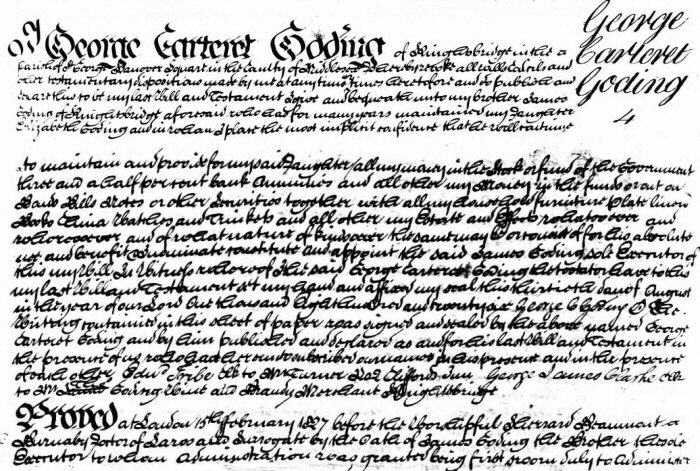 I George Carteret Goding of Knightsbridge in the
George
Carteret
Goding
4
parish of St George Hanover Square in the County of Middlesex do hereby revoke all Wills Codicils and
other testamentary dispositions made by me at any time or times heretofore and do publish and
declare this to be my last Will and Testament I give and bequeath unto my brother James
Goding of Knightsbridge aforesaid who has for many years maintained my Daughter
Elizabeth Goding and in whom I place the most implicit confidence that he will continue
to maintain and provide for my said Daughter all my money in the Stock or fund of the Government
three and a half per cent bank Annuities and all other my Money in the funds or out on
Bond Bills Notes or other Securities together with all my household furniture plate linen
Books China Watches and Trinkets and all other my Estate and Effects whatsoever and
wheresoever and of what nature or kind soever the same may be for his absolute
use and benefit I nominate constitute and appoint the said James Goding sole Executor of
this my Will In Witness whereof I the said George Carteret Goding the testator have to this
my last Will and Testament set my hand and affixed my seal this thirtieth day of August
in the year of our Lord One thousand eight hundred and twenty six George C Goding The
Writing contained in this sheet of paper was signed and sealed by the above named George
Carteret Goding and by him published and declared as and for his last Will and Testament in
the presence of us who have hereunto subscribed our names in his presence and in the presence
of each other Edwd Tribe Clk to Mr Turner Cliffords Inn George James Clarke Clk
to Mr Goding Wine and Brandy Merchant Knightsbridge
Proved at London 15th February 1827 before the Worshipful Sherrard Beaumont
Burnaby Doctor of Laws and Surrogate by the Oath of James Goding the Brother the sole
Executor to whom Administration was granted being first sworn duly to Administer